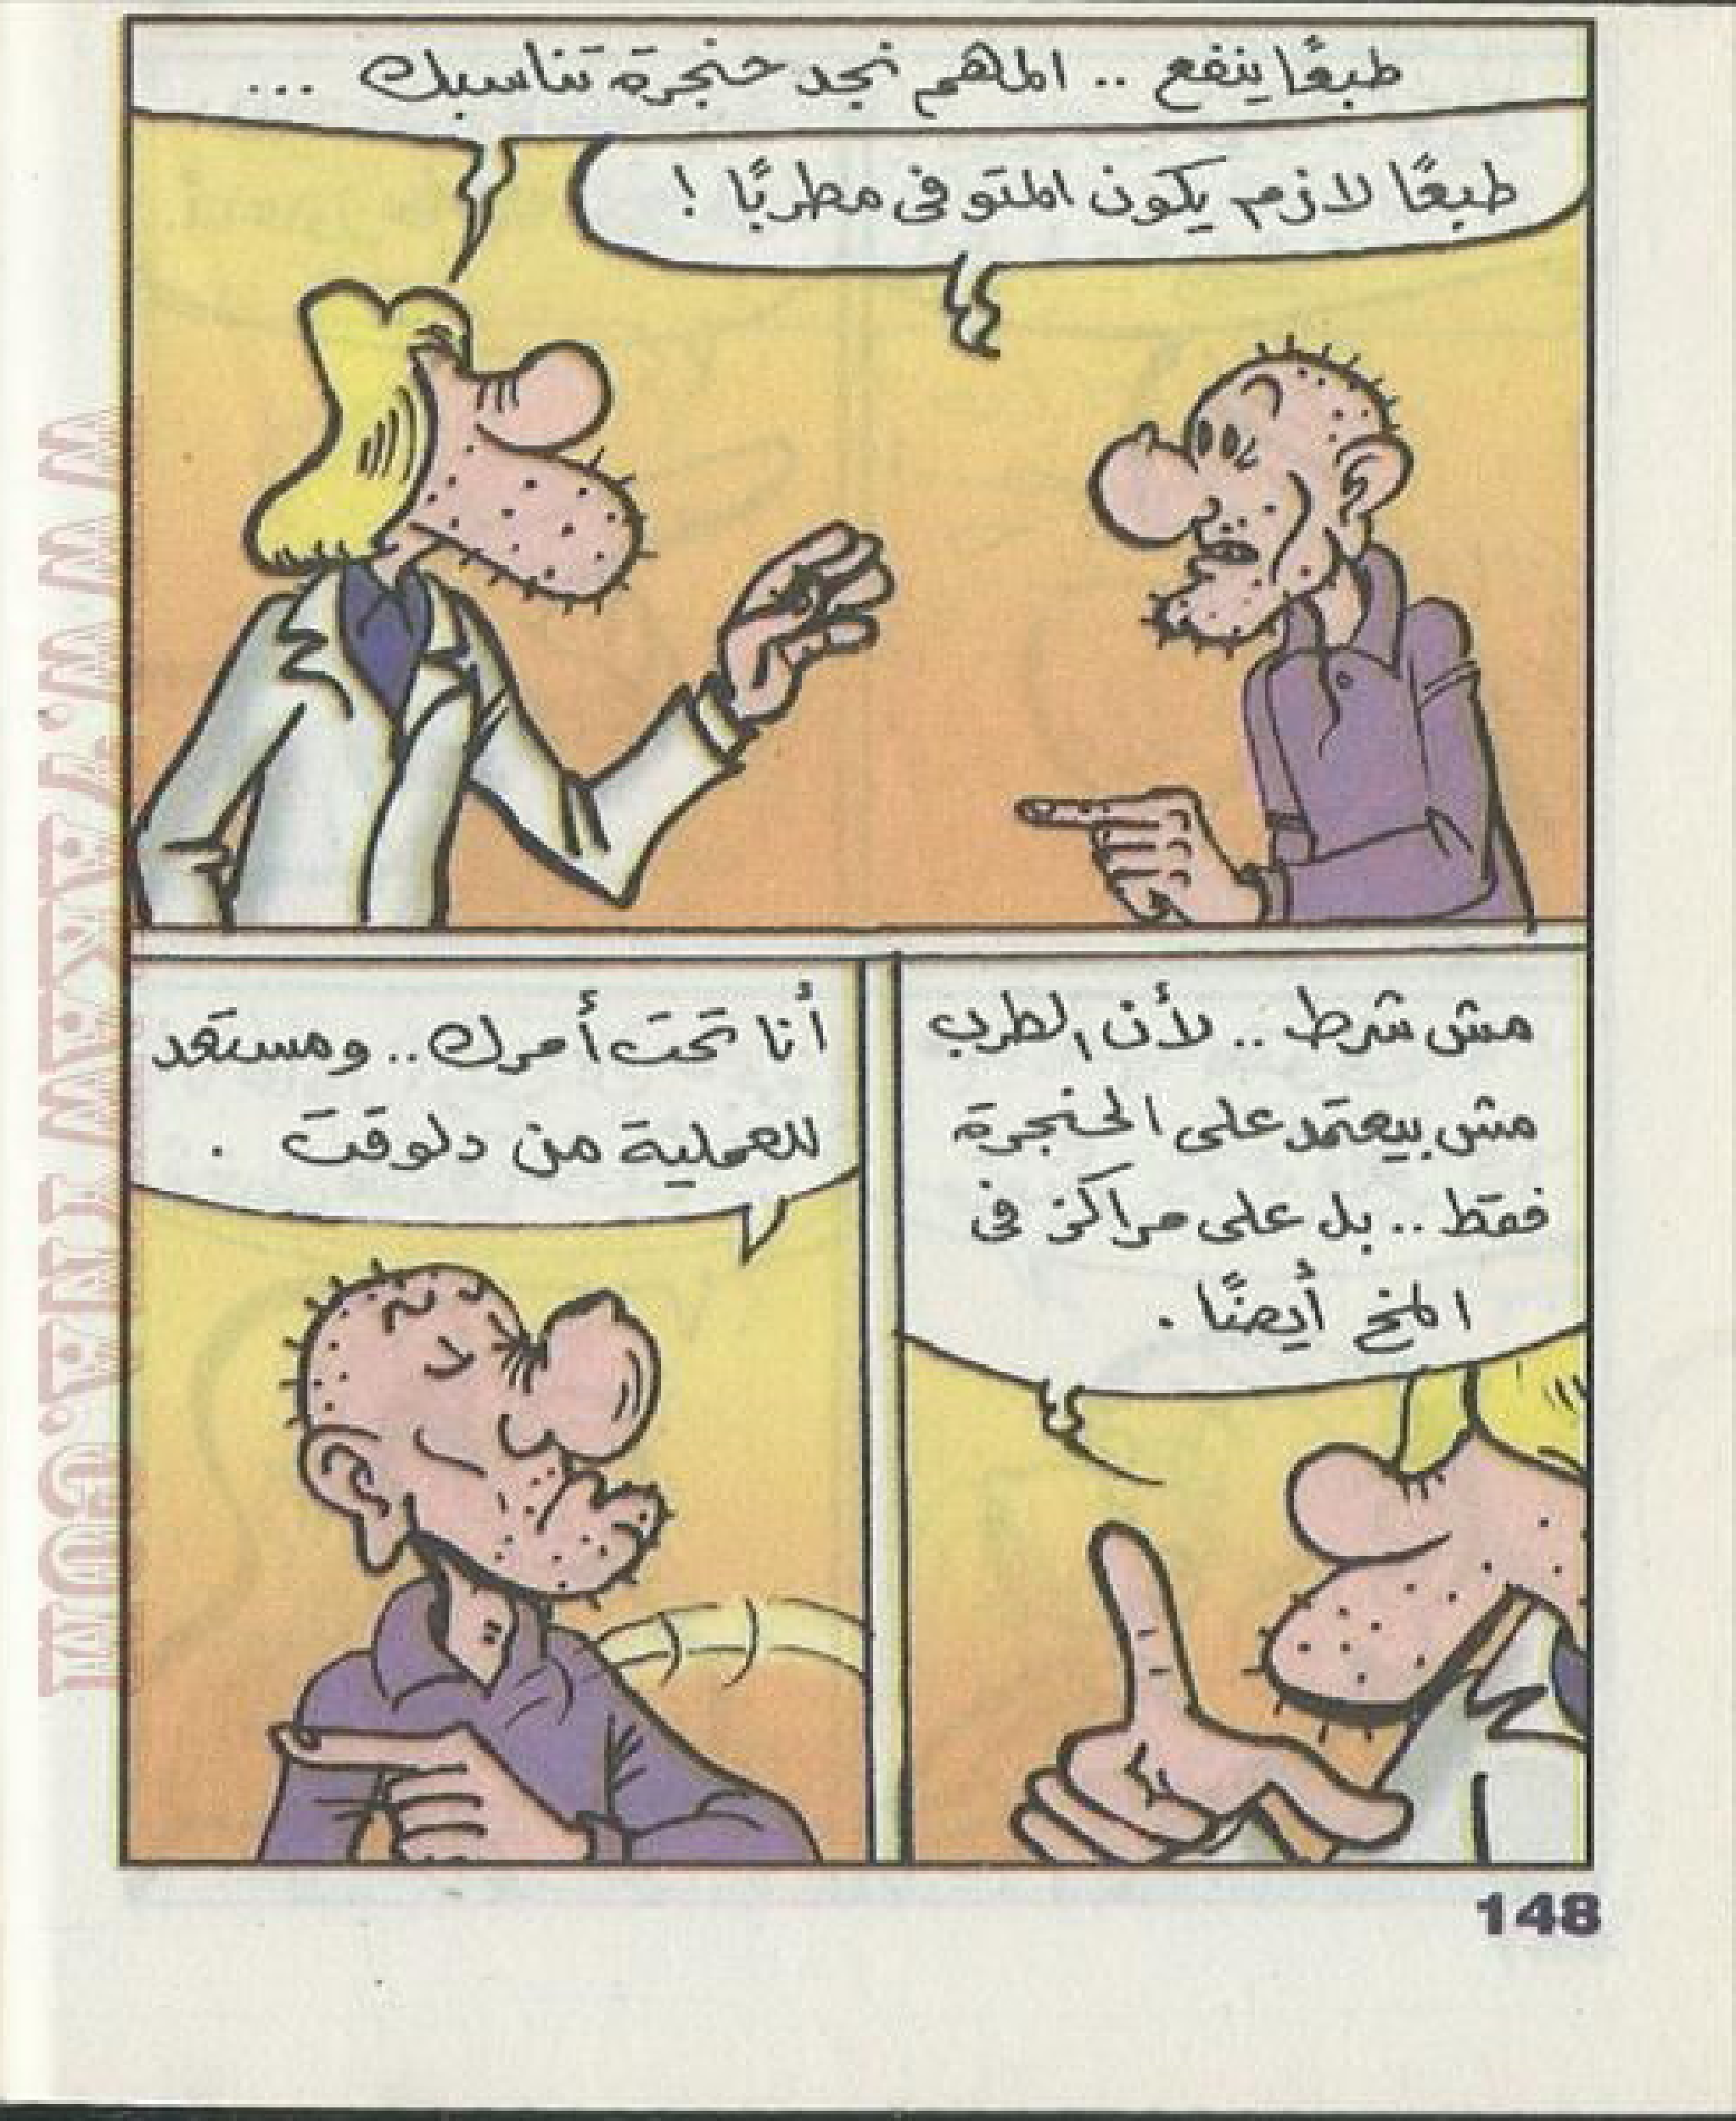 طبعًا ينفع .. المهم نجد حنجرة تناسبك ...
طبعًا لازم يكون المتوفى مطربًا !
مش شرط .. لأن الطرب
مش بيعتمد على الحنجرة
فقط .. بل على مراكز فى
المخ أيضًا .
أنا تحت أمرك .. ومستعد
للعملية من دلوقت .
148